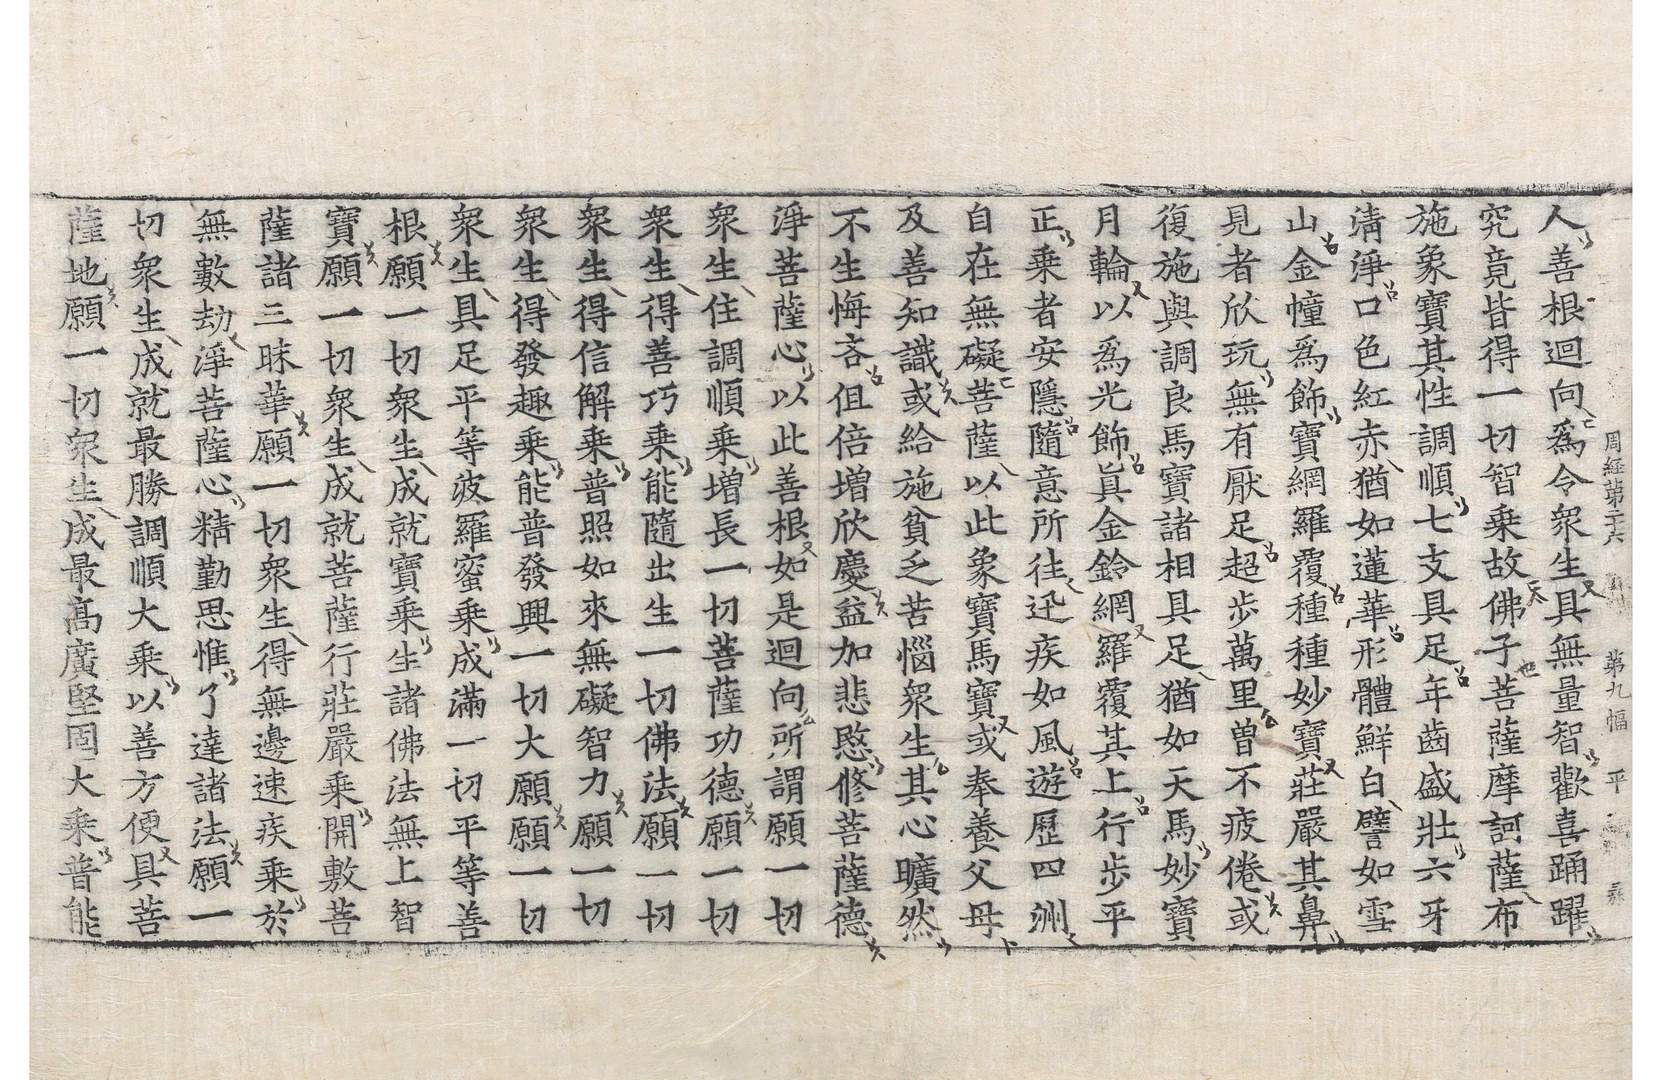 周経第二十六 第九幅 平
人善根迴向爲令衆生具無量智歡喜踊躍
究竟皆得一切智乗故佛子菩薩摩訶薩布
施象寶其性調順七支具足年齒盛壯六牙
清淨口色紅赤猶如蓮華形體鮮白譬如雪
山金幢爲飾寶網羅覆種種妙寶莊嚴其鼻
見者欣玩無有厭足超步萬里曽不疲倦或
復施與調良馬寶諸相具足猶如天馬妙寶
月輪以爲光飾眞金鈴網羅覆其上行步平
正乗者安隱隨意所往迅疾如風遊歷四洲
自在無礙菩薩以此象寶馬寶或奉養父母
及善知識或給施貧乏苦惱衆生其心曠然
不生悔吝但倍增欣慶益加悲愍修菩薩德
淨菩薩心以此善根如是迴向所謂願一切
衆生住調順乗増長一切菩薩功德願一切
衆生得善巧乗能隨出生一切佛法願一切
衆生得信解乗普照如來無礙智力願一切
衆生得發趣乗能普發興一切大願願一切
衆生具足平等波羅蜜乗成滿一切平等善
根願一切衆生成就寶乗生諸佛法無上智
寶願一切衆生成就菩薩行莊嚴乗開敷菩
薩諸三昧華願一切衆生得無邊速疾乗於
無數劫淨菩薩心精勤思惟了達諸法願一
切衆生成就最勝調順大乗以善方便具菩
薩地願一切衆生成最髙廣堅固大乗普能